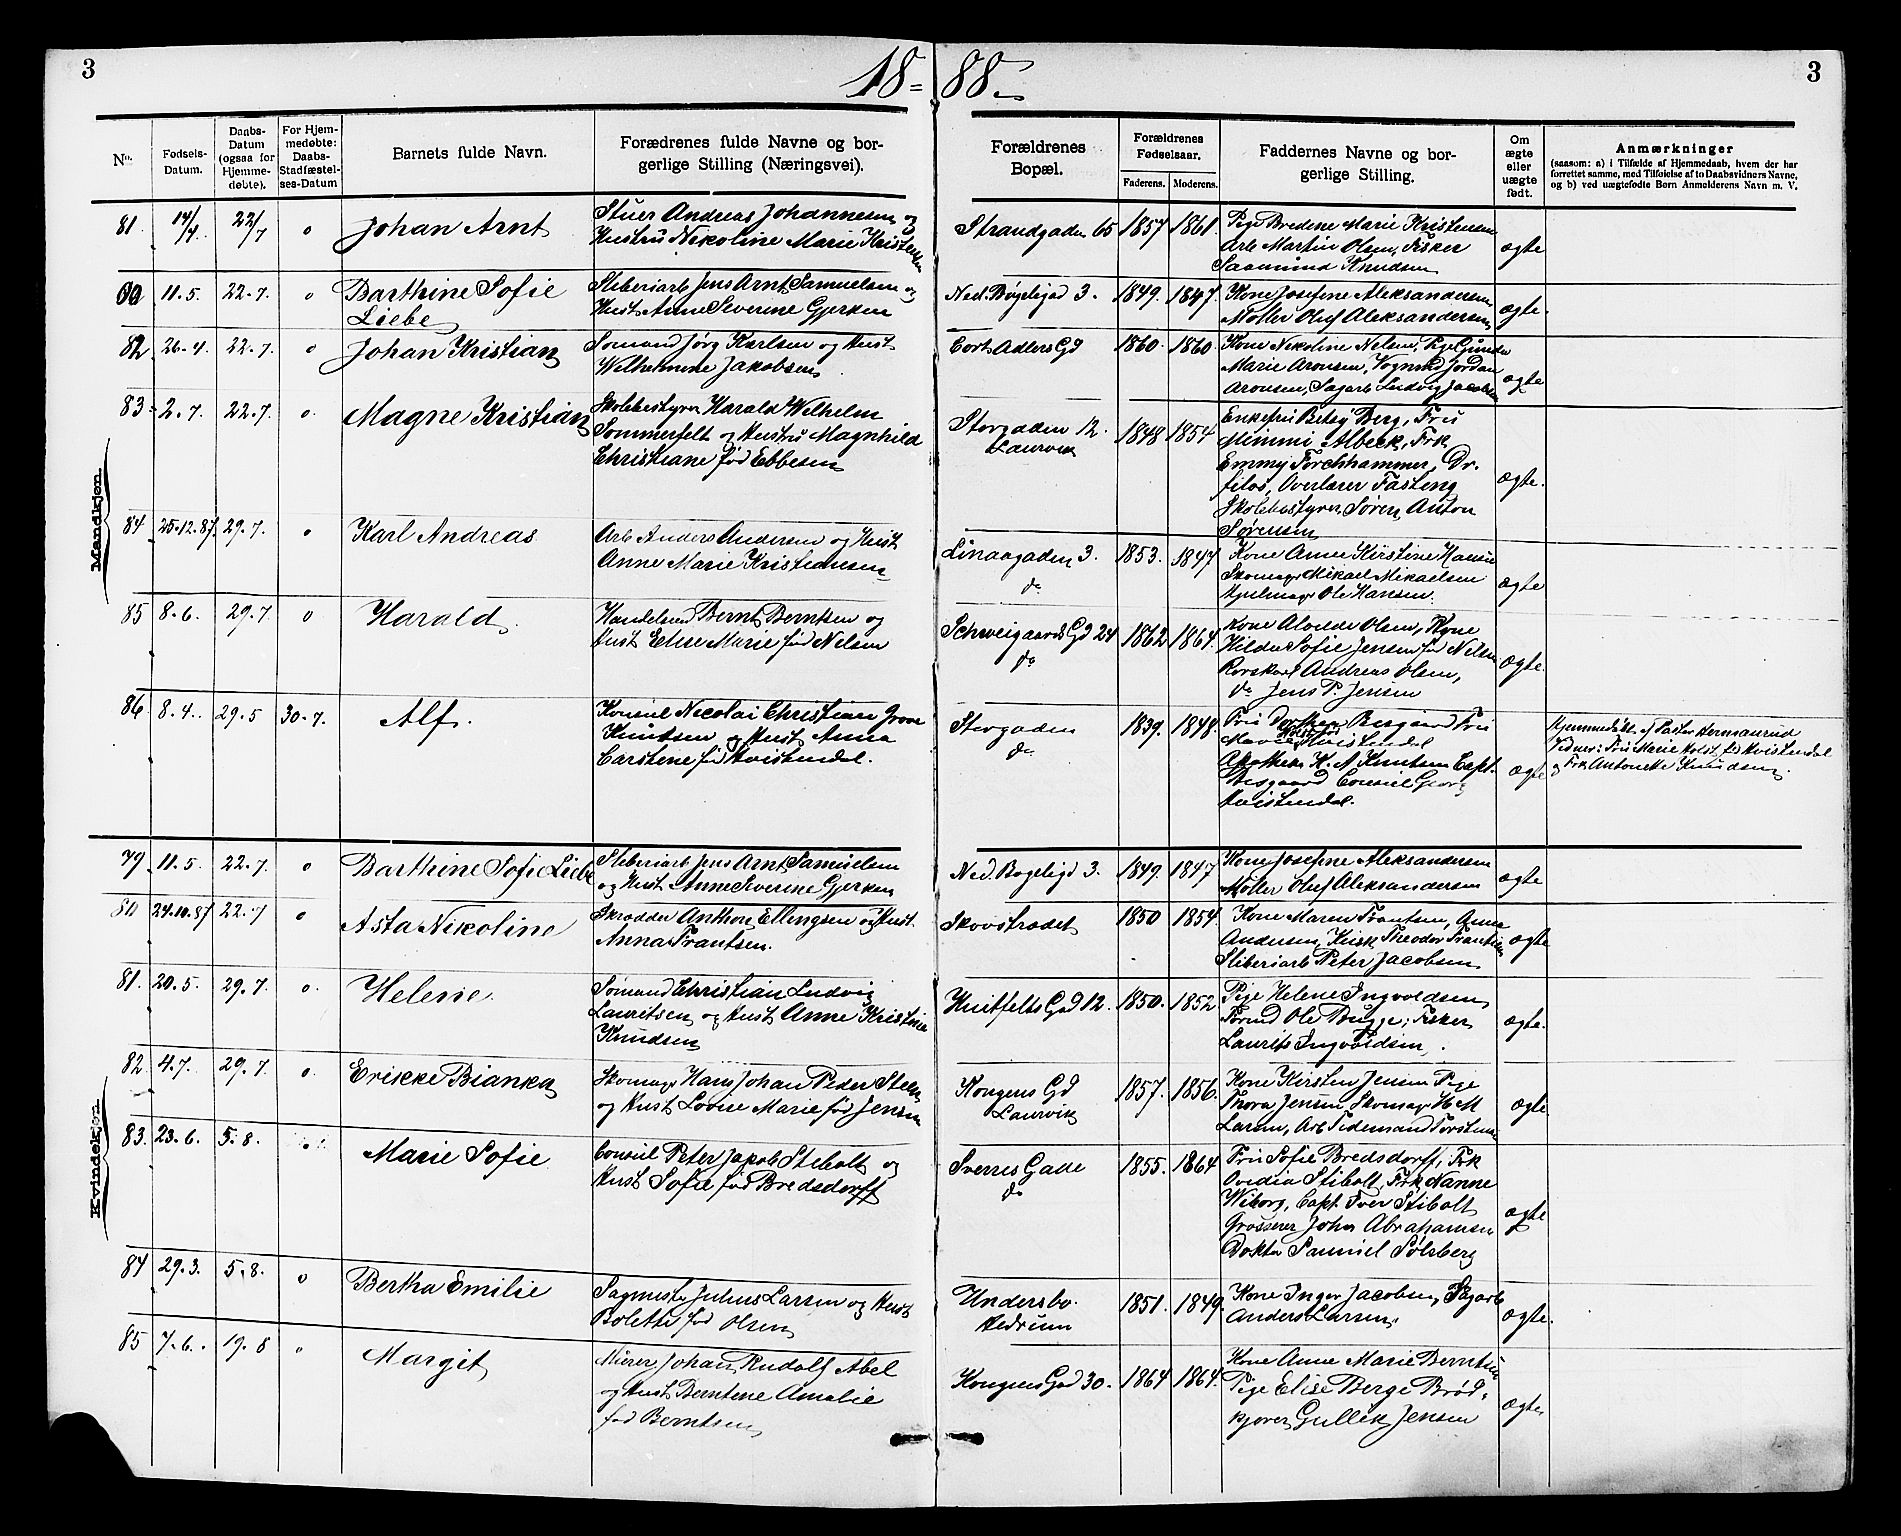 3
18 = 88.
3
No.
Fødsels-
Datum.
Daabs-
Datum
(ogsaa for
Hjemme-
døbte).
For Hjem-
medøbte:
Daabs-
Stadfæstel-
ses-Datum
Barnets fulde Navn.
Forældrenes fulde Navne og bor-
gerlige Stilling (Næringsvei).
Forældrenes
Bopæl.
Forældrenes
Fødselsaar.
Faderens. Moderens.
Faddernes Navne og bor-
gerlige Stilling.
Om
ægte
eller
uægte
født.
Anmærkninger
(saasom: a) i Tilfælde af Hjemmedaab, hvem der har
forrettet samme, med Tilføielse af to Daabsvidners Navne,
og b) ved uægtefødte Børn Anmelderens Navn m. V.
Mandkjøn
81. 14/4 22/7 o Johan Arnt
Stuer Andreas Johannesen og
Hustru Nikoline Marie Kristensen
Strandgaden 65 1857 1861
Pige Bredine Marie Kristensen
Arb Martin Olsen, Fisker
Saamund Knudsen
ægte
11.5. 22.7. o Barthine Sofie
Liebe
Sliberiarb Jens Arnt Samuelsen og
Hust Anne Severine Gjerken
Ned. Bøgeligd 3. 1849. 1847.
Kone Josefine Aleksandersen
Møller Oluf Aleksandersen
ægte.
82 26.4. 22.7. o Johan Kristian
Sømand Jørg Karlsen og Hust
Wilhelmine Jakobsen
Cort Adlers Gd 1860. 1860.
Kone Nikoline Nelsen, Pige Gunda
Marie Aronsen, Vognmd Jordan
Aronsen, Sagarb Ludvig Jacobsen
ægte
83. 2.7. 22.7. o. Magne Kristian
Skolebestyrer Harald Wilhelm
Sommerfelt og Hustru Magnhild
Christiane fød Ebbesen
Storgaden 12.
Laurvik
1848 1854
Enkefru Betsy Berg, Fru
Mimmi Albeck, Frk
Emmy Forchhammer, Dr.
filos, Overlærer Fasting
Skolebestyrer Søren Anton
Sørensen
ægte.
84 25.12.87. 29.7. o Karl Andreas
Arb Anders Andersen og Hust
Anne Marie Kristiansen
Linaagaden 3.
do
1853. 1847
Kone Anne Kirstine Hansen
Skomagr Mikael Mikaelsen
Hjulmagr Ole Hansen.
ægte
85 8.6. 29.7. o Harald
Handelsmd Bernt Berntsen og
Hust Elise Marie fød Nelsen
Schweigaards Gd 24
do
1862 1864.
Kone Alvilde Olsen, Kone
Hilda Sofie Jensen fød Nilsen
Rorskarl Andreas Olsen,
do Jens P. Jensen
ægte.
86 8.4. 29.5 30.7. Alf.
Konsul Nicolai Christian Grove
Knudtsen og Hust Anna
Carstine fød Kvistendal.
Storgaden
do
1839. 1848.
Fru
Marie Holst fød Hvistendal
Apotheker K. N. Knutsen Capt.
Consul Georg
Hvistendal.
ægte
Hjemmedøbt af Pastor Hermanrud
Vidner: Fru Marie Holst fød Hvistendal
og Frk Antonette Knudsen.
Kvindekjøn
79. 11.5. 22.7. o Barthine Sofie Liebe
Sliberiarb Jens Arnt Samuelsen
og Hust Anne Severine Gjerken
Ned. Bøgeligd 3. 1849. 1847
Kone Josefine Aleksandersen
Møller Oluf Aleksandersen
ægte
80 24.10.87 22.7 o Asta Nikoline
Skrædder Anthon Ellingsen og Hust
Anna Frantsen.
Skovstrædet 1850 1854.
Kone Maren Frantsen, Anne
Andersen, Kusk Theodor Frantsen
Sliberiarb Peter Jacobsen
ægte
81. 20.5. 29.7. o. Helene
Sømand Christian Ludvig
Lauritsen og Hust Anne Kristine
Knudsen
Huitfelts Gad 12. 1850. 1852
Pige Helene Ingvoldsen
Tørmd Ole Bugge, Fisker
Laurits Ingvoldsen.
ægte.
82 4.7. 29.7. o. Erikke Bianka
Skomagr Hans Johan Peder Steen
og Hust Lovise Marie fød Jensen
Kongens Gd
Laurvik
1857. 1856.
Kone Kirsten Jensen Pige
Thora Jensen Skomagr H M
Larsen, Arb Tidemand Torstensen
ægte
83. 23.6. 5.8. Marie Sofie
Consul Peter Jacob Stibolt og
Hust Sofie fød Bredsdorff
Sverres Gade
do
1855. 1864
Fru Sofie Bredsdorff, Frk
Ovidia Stibolt, Frk Nanne
Wiborg, Capt Iver Stibolt
Grosserer John Abrahamsen
Doktor Samuel Sølsberg
ægte
84 29.3. 5.8. o Bertha Emilie
Sagmester Julius Larsen og Hust
Bolette fød Olsen
Undersbo.
Hedrum
1851. 1849.
Kone Inger Jacobsen, Sagarb
Anders Larsen.
ægte.
85 7.6. 19.8 o Margit
Murer Johan Rudolf Abel
og Hust Berntine Amalie
fød Berntsen
Kongens Gad 30. 1864 1864.
Kone Anne Marie Berntsen
Pige Elise Berge Brød-
kjører Gullik Jensen
ægte